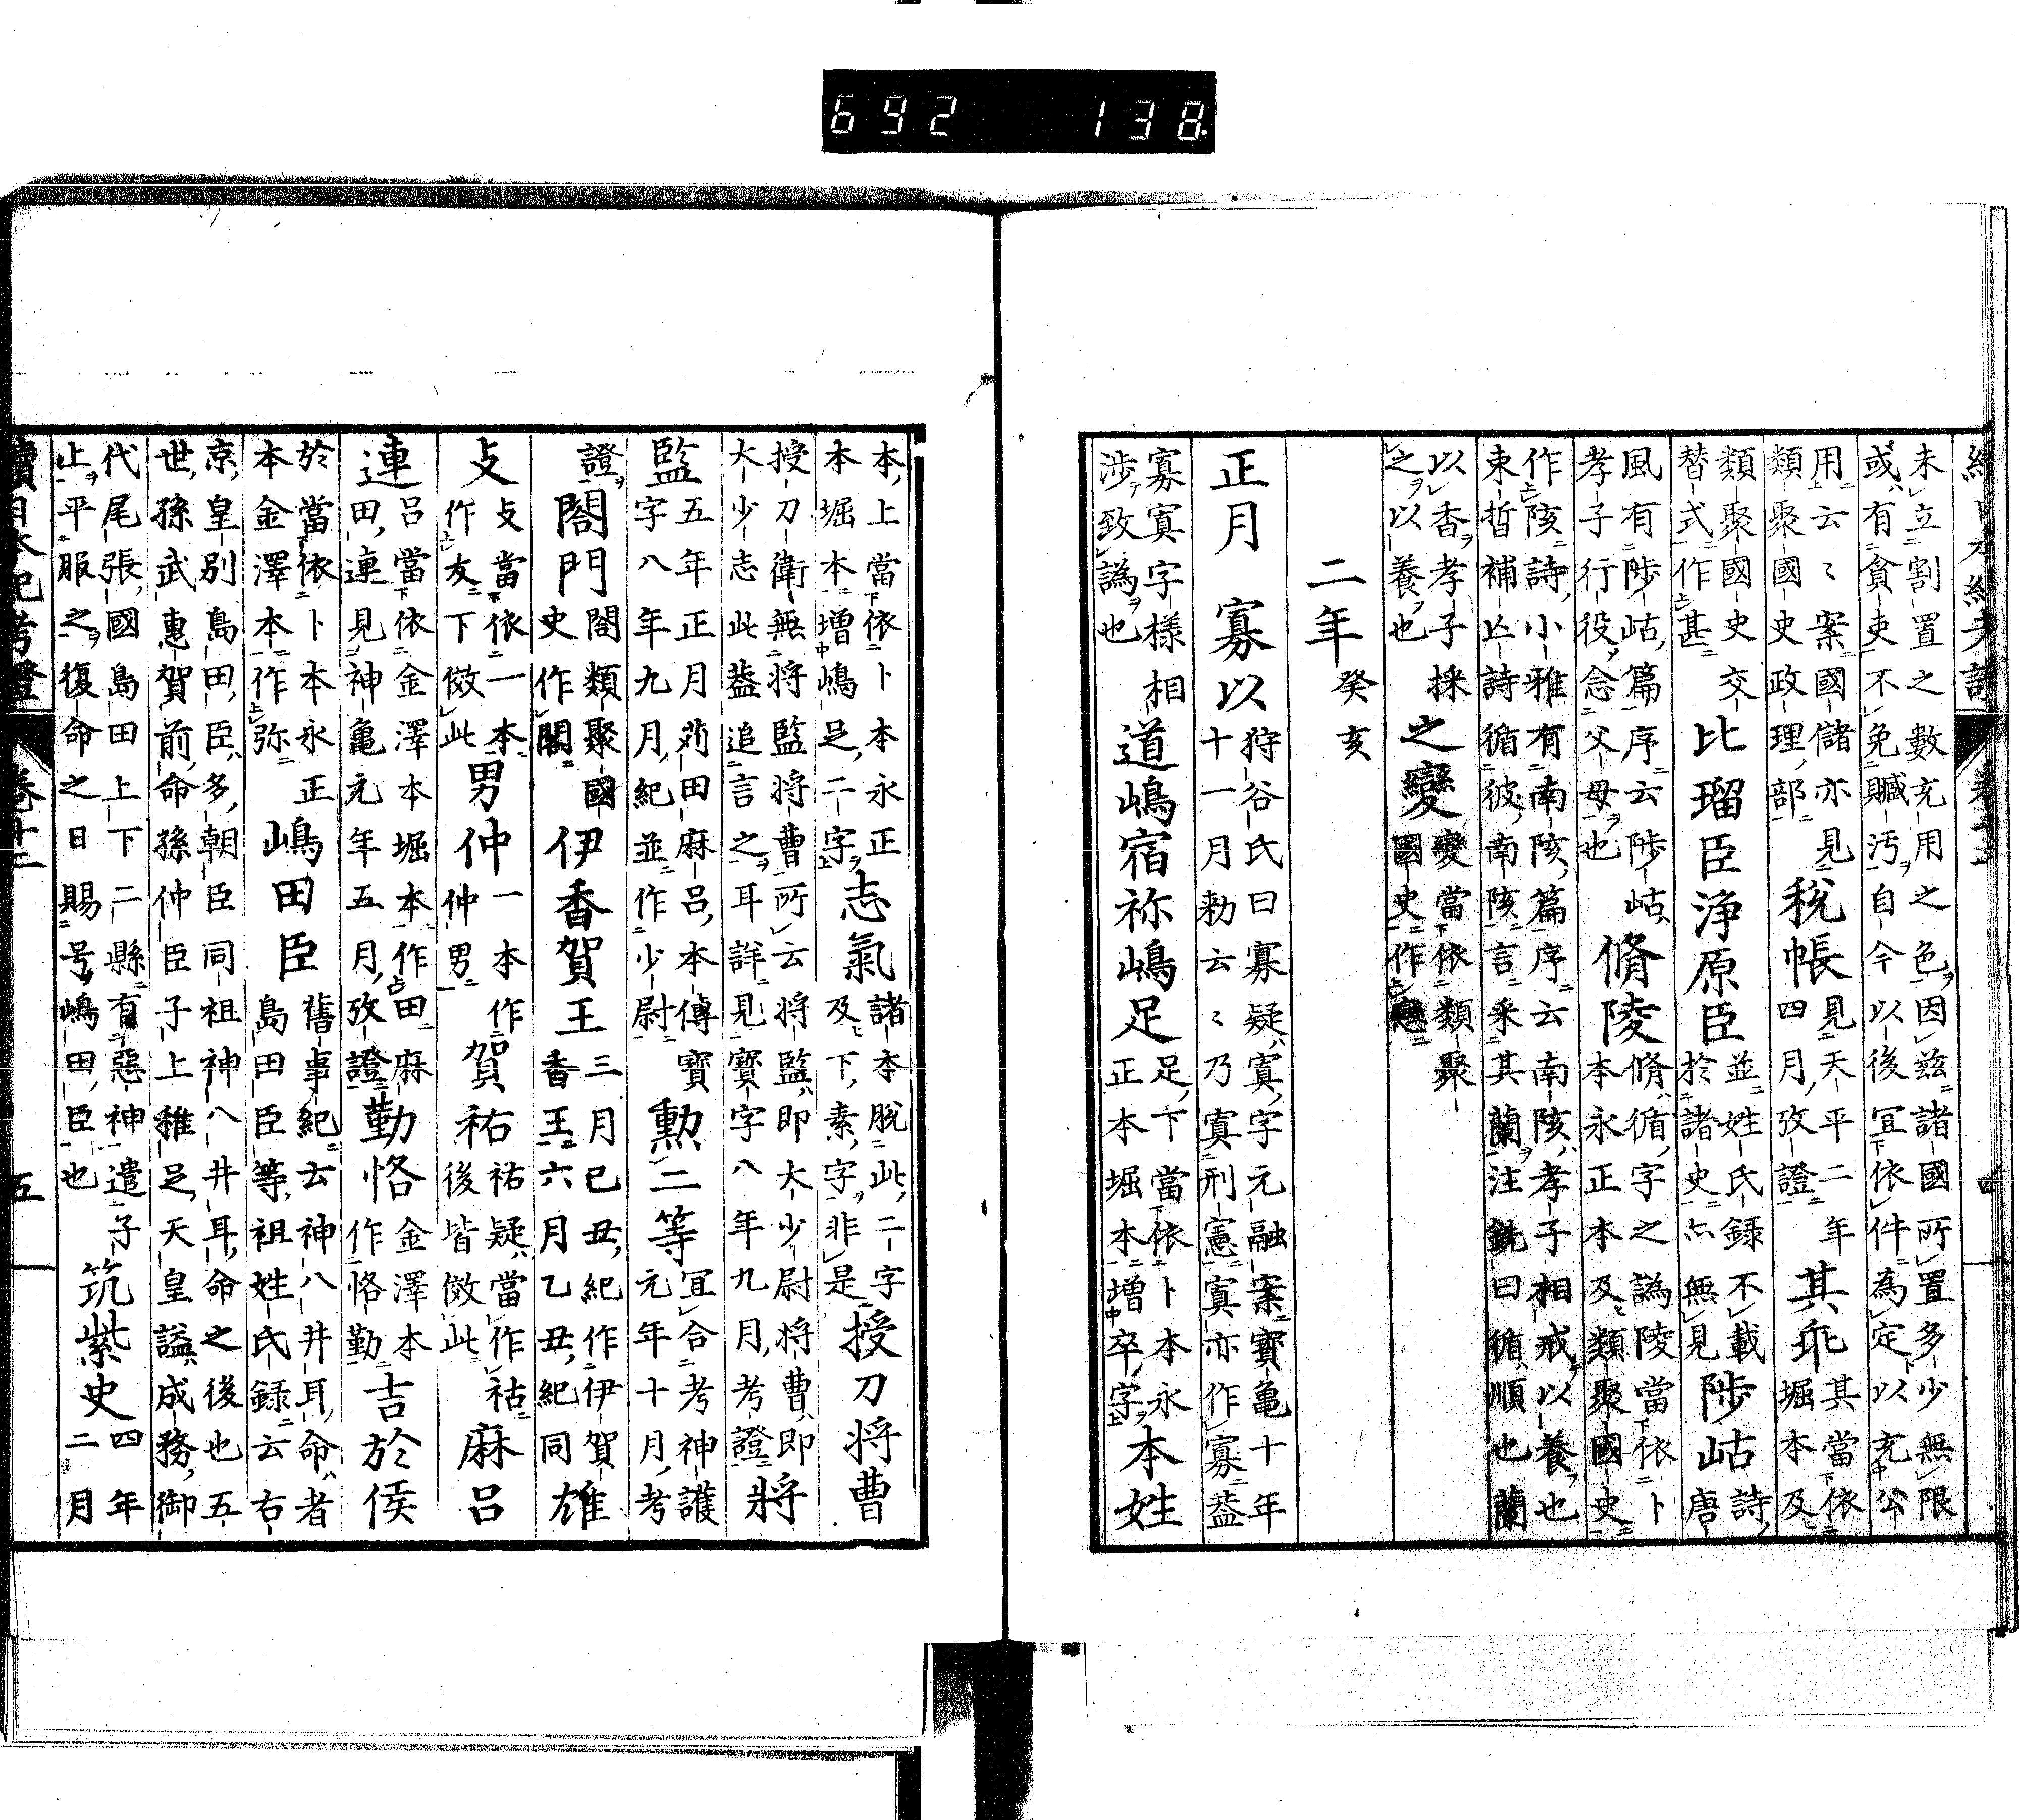 692 138.
未立割置之數充用之色因茲諸國所置多少無限
或有貪吏不免贓汚自今以後宜依件為定以充公
用云〻案國儲亦見
類聚國史政理部
稅帳
見天平二年
四月攷證
其乖
其當依
堀本及
類聚國史交
替式作甚
比瑠臣浄原臣
並姓氏録不載
於諸史亦無見
陟岵
詩
唐
風有陟岵篇序云陟岵
孝子行役念父母也
脩陵
脩循字之譌陵當依卜
本永正本及類聚國史
作陔詩小雅有南陔篇序云南陔孝子相戒以養也
束晳補亾詩循彼南陔言采其蘭注銑曰循順也蘭
以香孝子採
之以養也
之變
變當依類聚
國史作戀
二年
癸亥
正月
寡以
狩谷氏曰寡疑寞字元融案寶亀十年
十一月勅云〻乃寞刑憲寞亦作寡葢
寡寞字樣相
涉致譌也
道嶋宿祢嶋足
足下當依卜本永
正本堀本増卒字
本姓
本上當依卜本永正
本堀本増嶋足二字
志氣
諸本脫此二字
及下素字非是
授刀將曹
授刀衛無將監將曹所云將監即大少尉將曹即
大少志此葢追言之耳詳見寶字八年九月考證
將
監
五年正月苅田麻呂本傳寶
字八年九月紀並作少尉
勳二等
宜合考神護
元年十月考
證
閤門
閤類聚國
史作閣
伊香賀王
三月已丑紀作伊賀
香王六月乙丑紀同
雄
攴
攴當依一本
作友下傚此
男仲
一本作
仲男
賀祐
祐疑當作祜
後皆傚此
麻呂
連
呂當依金澤本堀本作田麻
田連見神亀元年五月攷證
勤恪
金澤本
作恪勤
吉於侯
於當依卜本永正
本金澤本作弥
嶋田臣
舊事紀云神八井耳命者
島田臣等祖姓氏録云右
京皇別島田臣多朝臣同祖神八井耳命之後也五
世孫武惠賀前命孫仲臣子上稚足天皇謚成務御
代尾張國島田上下二縣有惡神遣子
上平服之復命之日賜号嶋田臣也
筑紫史
四年
二月
續日本紀考證
卷十二
五